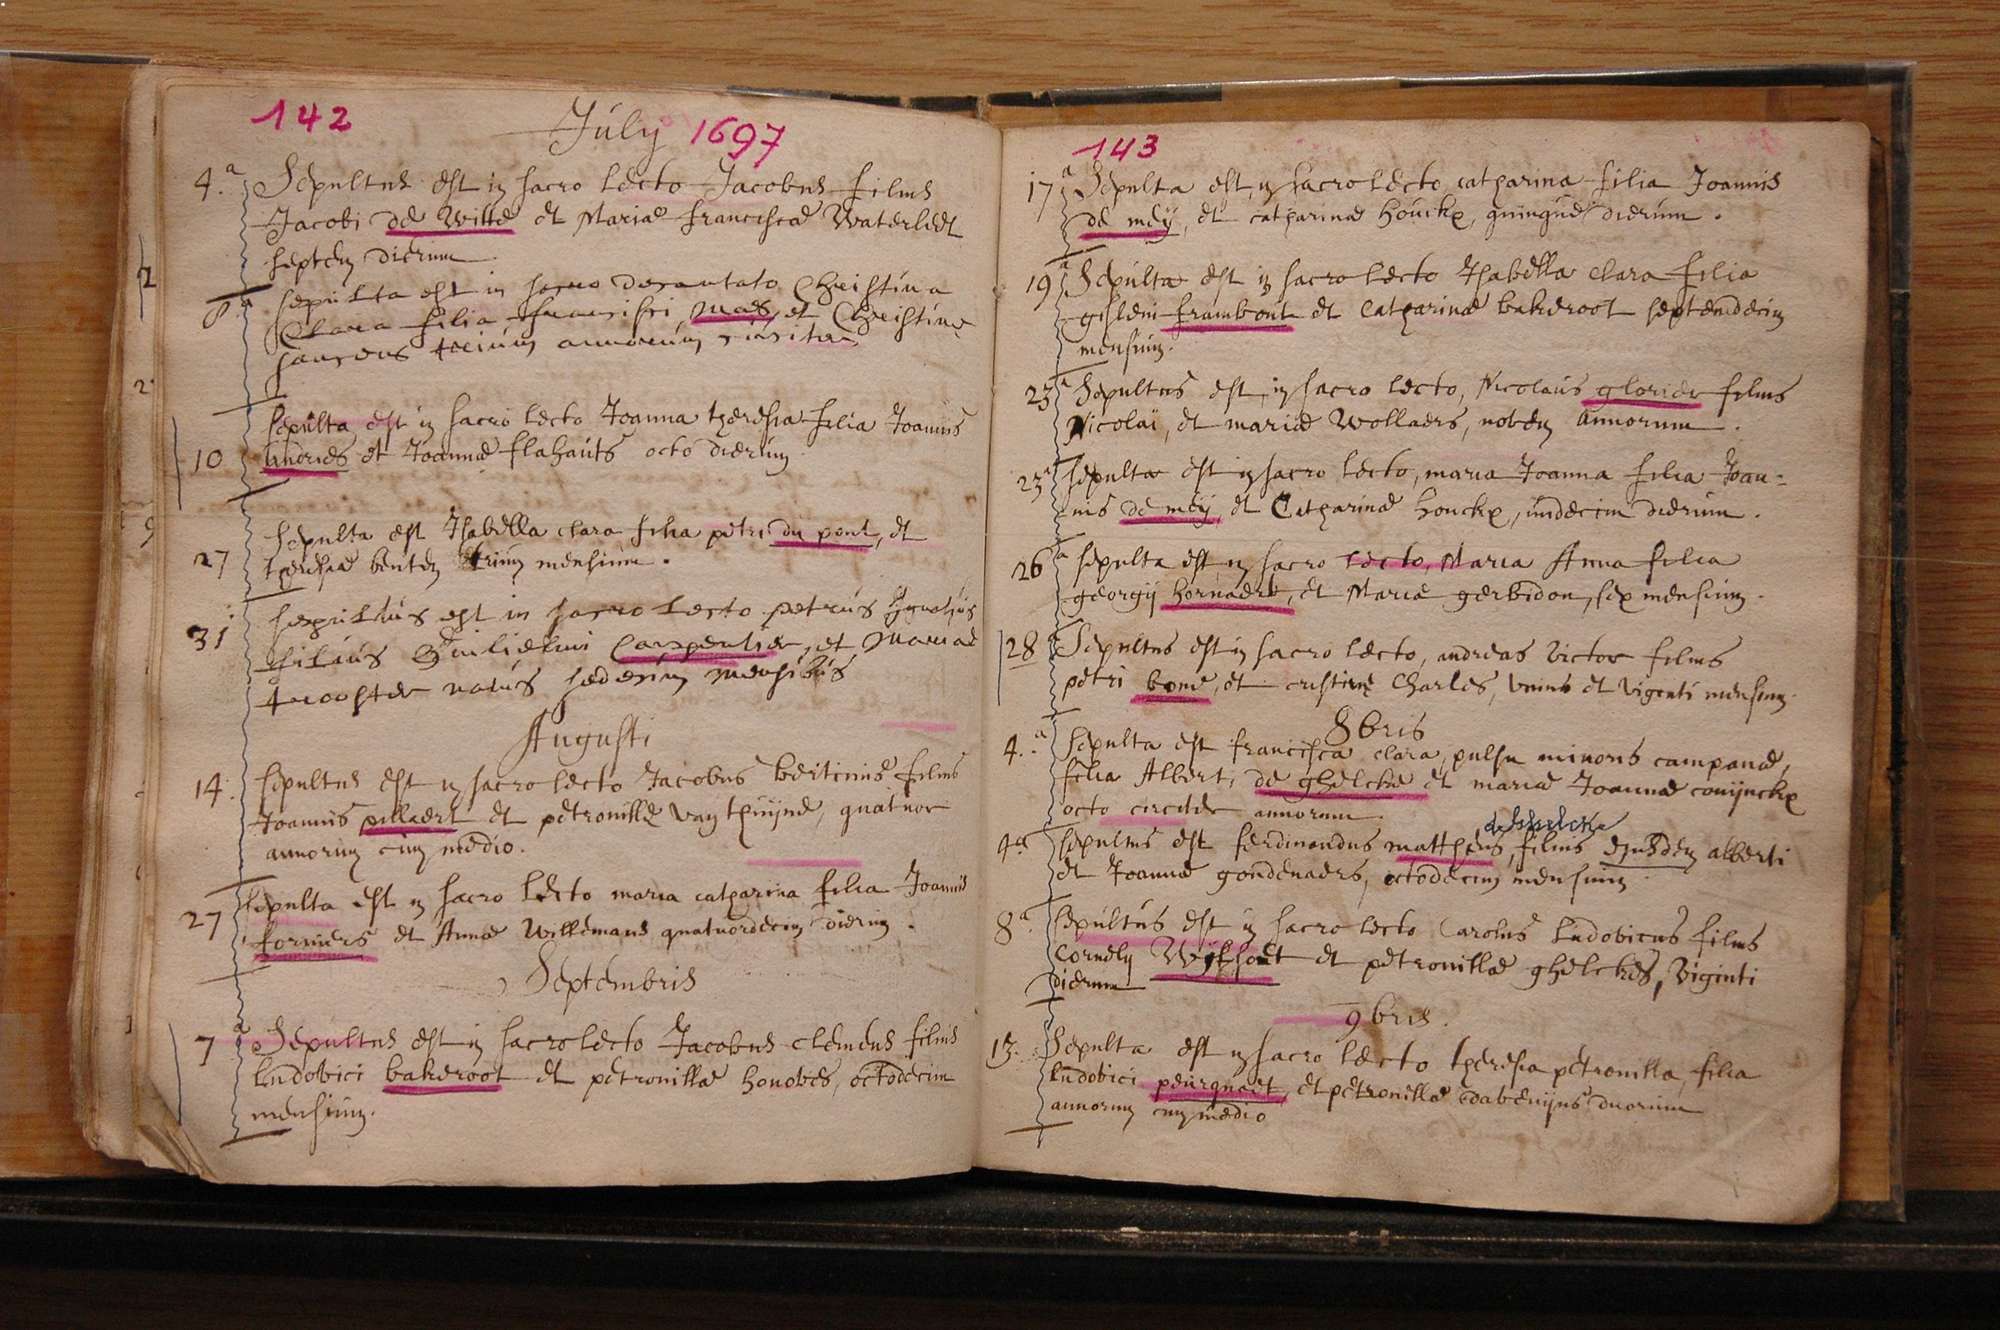 142
July 1697
4.a Sepultus est in sacro lecto Jacobus filius
Jacobi de Witte et Mariae franciscae Waterleet
septem dierum
8a sepulta est in sacro decantato Christina
Clara filia francisci maes et Christinae
trium annorum circiter
sepulta est in sacro lecto Joanna theresia filia Joannis
10 andries et Joannae flahauts octo dierum
27 sepulta est Isabella clara filia petri du pont, et
theresiae benten trium mensium.
31 sepultus est in sacro lecto petrus Ignatius
filius Guilielmi Carpentier, et Mariae
natus sedecim mensibus
Augusti
14. sepultus est in sacro lecto Jacobus bertinus filius
Joannis pillaert et petronillae quatuor
annorum cum medio.
27 sepulta est in sacro lecto maria catharina filia Joannis
forniers et Annae Willemans quatuordecim dierum.
Septembris
7a Sepultus est in sacro lecto Jacobus clemens filius
ludovici bakeroot et petronillae honoves, octodecim
mensium.
143
17a Sepulta est in sacro lecto, catharina filia Joannis
de meij, et catharinae houckx, quinque dierum.
19a Sepulta est in sacro lecto Isabella clara filia
gisleni frambout et Catharinae bakeroot septemdecim
mensium.
23a Sepultus est in sacro lecto, Nicolaus glorier filius
Nicolai, et mariae Wollaers, novem annorum.
23a sepulta est in sacro lecto, maria Joanna filia Joan=
nis de meij, et Catharinae houckx, undecim dierum.
26a sepulta est in sacro lecto, Maria Anna filia
georgij hornaert, et Mariae gerbidon, sex mensium.
28a Sepultus est in sacro lecto, andreas victor filius
petri bone, et cristinae Charles, unius et viginti mensium.
8bris
4.a sepulta est francisca clara, pulsu minoris campanae,
filia Alberti de ghelcke et mariae Joannae couijnckx
octo circiter annorum.
deghelcke
4a sepultus est ferdinandus mattheus, filius eiusdem alberti
et Joannae gondenaers, octodecim mensium
8a sepultus est in sacro lecto Carolus ludovicus filius
Cornelij Wijtsoet et petronillae ghelckes, viginti
dierum
9bris.
13. Sepulta est in sacro lecto theresia petronilla, filia
ludovici peurquaet, et petronillae duorum
annorum cum medio